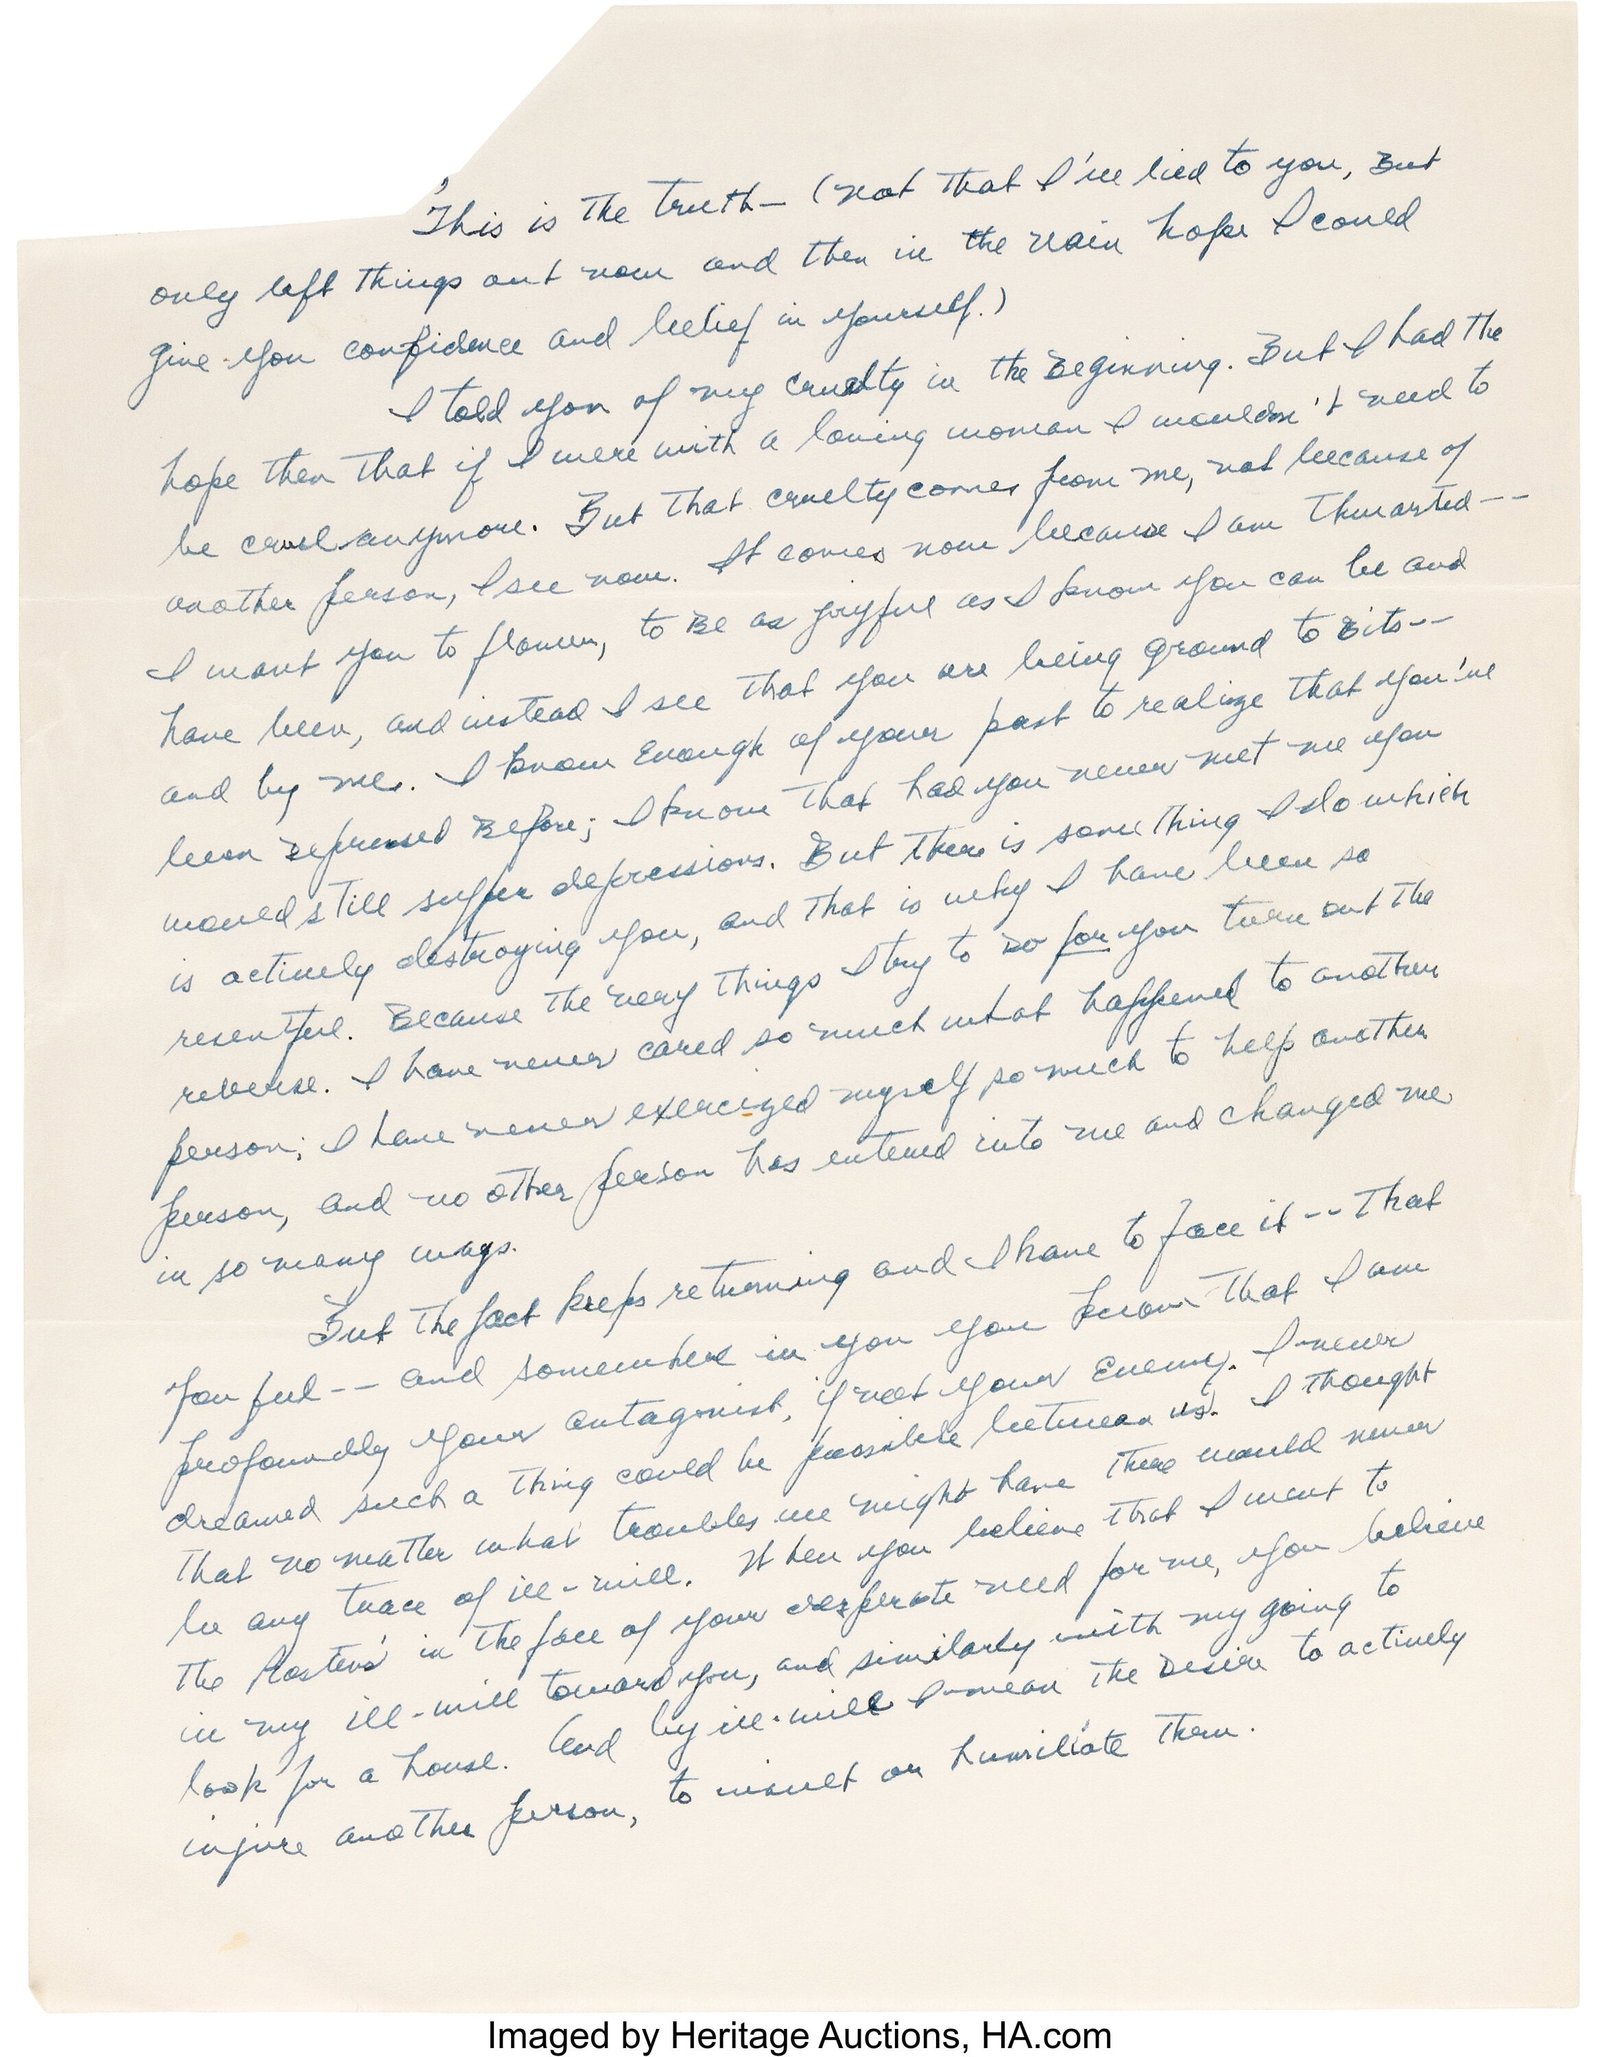 This is the truth — (not that I've lied to you, But
only left things out now and then in the vain hope I could
give you confidence and belief in yourself.)
I told you of my cruelty in the Beginning. But I had the
hope then that if I were with a loving woman I wouldn't need to
be cruel anymore. But that cruelty comes from me, not because of
another person, I see now. It comes now because I am thwarted --
I want you to flower, to Be as joyful as I know you can be and
have been, and instead I see that you are being ground to Bits --
and by me. I know Enough of your past to realize that you've
been depressed Before; I know that had you never met me you
would still suffer depressions. But there is something I do which
is actively destroying you, and that is why I have been so
resentful. Because the very things I try to do for you turn out the
reverse. I have never cared so much what happened to another
person; I have never exercized myself so much to help another
person, and no other person has entered into me and changed me
in so many ways.
But the fact keeps returning and I have to face it -- that
you feel -- and somewhere in you you know that I am
profoundly your antagonist, if not your Enemy. I never
dreamed such a thing could be possible between us. I thought
that no matter what troubles we might have there would never
be any trace of ill-will. When you believe that I went to
the Rostens' in the face of your desperate need for me, you believe
in my ill-will toward you, and similarly with my going to
look for a house. And by ill-will I mean the Desire to actively
injure another person, to insult or humiliate them.
Imaged by Heritage Auctions, HA.com